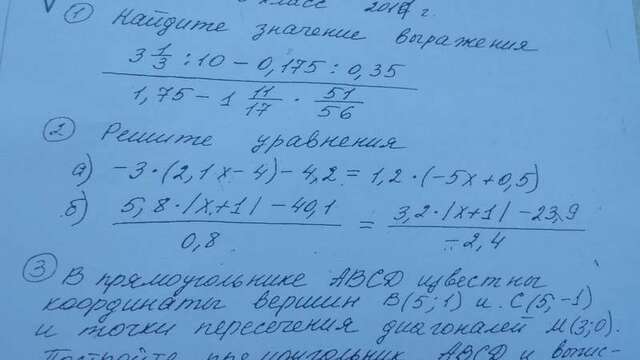 класс 2017 г.
① Найдите значение выражения
(3 1/3 : 10 − 0,175 : 0,35) / (1,75 − 1 11/17 · 51/56)
② Решите уравнения
а) −3·(2,1x−4)−4,2=1,2·(−5x+0,5)
б) (5,8·|x+1|−40,1) / 0,8 = (3,2·|x+1|−23,9) / −2,4
③ В прямоугольнике ABCD известны
координаты вершин B(5;1) и C(5;−1)
и точки пересечения диагоналей M(3;0).
Постройте прямоугольник ABCD и выпис-